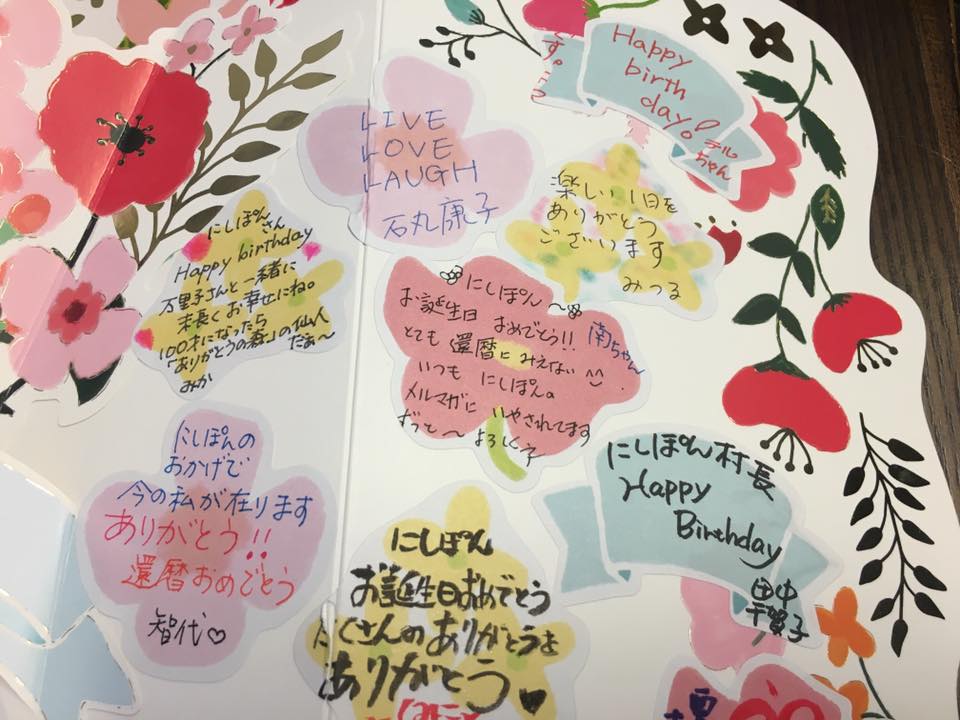 Happy
birth
day!
テルちゃん
LIVE
LOVE
LAUGH
石丸康子
楽しい1日を
ありがとう
ございます
みつる
にしぽんさん
Happy birthday
万里子さんと一緒に
末長くお幸せにね。
100才になったら
「ありがとうの森」の仙人
だぁ〜
みか
にしぽん〜
お誕生日 おめでとう!!
南ちゃん
とても 還暦に みえない ^^
いつも にしぽんの
メルマガに いやされてます
ずっと〜 よろしくネ
にしぽんの
おかげで
今の私が在ります
ありがとう!!
還暦おめでとう
智代♡
にしぽん村長
Happy
Birthday
田中
千賀子
にしぽん
お誕生日おめでとう
たくさんのありがとうを
ありがとう♥